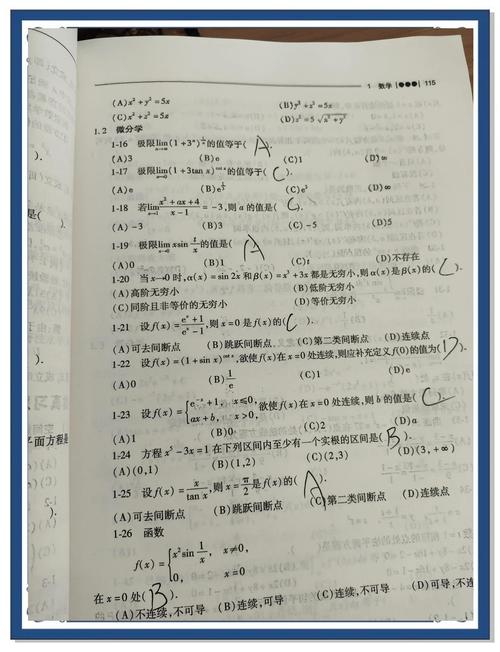 1 数学 |●●●| 115
(A)x²+y²=5x (B)y³+z³=5x
(C)x²+z²=5x (D)z²=5√(x²+y²)
1.2 微分学
1-16 极限lim(1+3ⁿ)^(1/n)的值等于( A ).
(A)3 (B)e (C)1 (D)∞
1-17 极限lim(1+3tan x)^(cot x)的值等于( C ).
(A)e (B)e^(1/3) (C)e³ (D)∞
1-18 若lim (x²+ax+4)/(x-1) = -3,则 a 的值是( C ).
(A)-3 (B)3 (C)-5 (D)5
1-19 极限lim x sin 1/x 的值是( A
(A)0 (B)1 (D)不存在
1-20 当 x→0 时,α(x)=sin2x 和 β(x)=x³+3x 都是无穷小,则 α(x)是 β(x)的( C ).
(A)高阶无穷小 (B)低阶无穷小
(C)同阶且非等价的无穷小 (D)等价无穷小
1-21 设f(x)=(eˣ+1)/(eˣ-1),则 x=0 是 f(x)的( C ).
(A)可去间断点 (B)跳跃间断点 (C)第二类间断点 (D)连续点
1-22 设f(x)=(1+sin x)^(cot x),欲使f(x)在 x=0 处连续,则应补充定义 f(0)的值为( D ).
(A)0 (B)1/e (C)1 (D)e
1-23 设f(x)={e⁻ˣ+1, x≤0, ax+b, x>0, 欲使f(x)在 x=0 处连续,则 b 的值是( C ).
(A)1 (B)0 (C)2 (D)a
1-24 方程 x⁵-3x=1 在下列区间内至少有一个实根的区间是( B ).
(A)(0,1) (B)(1,2) (C)(2,3) (D)(3,+∞)
1-25 设f(x)=x/tan x,则 x=π/2 是 f(x)的( A ).
(A)可去间断点 (B)跳跃间断点 (C)第二类间断点 (D)连续点
1-26 函数
f(x)={x² sin 1/x, x≠0,
0, x=0
在 x=0 处( B ).
(A)不连续,不可导 (B)连续,可导 (C)连续,不可导 (D)可导,不连
平面方程